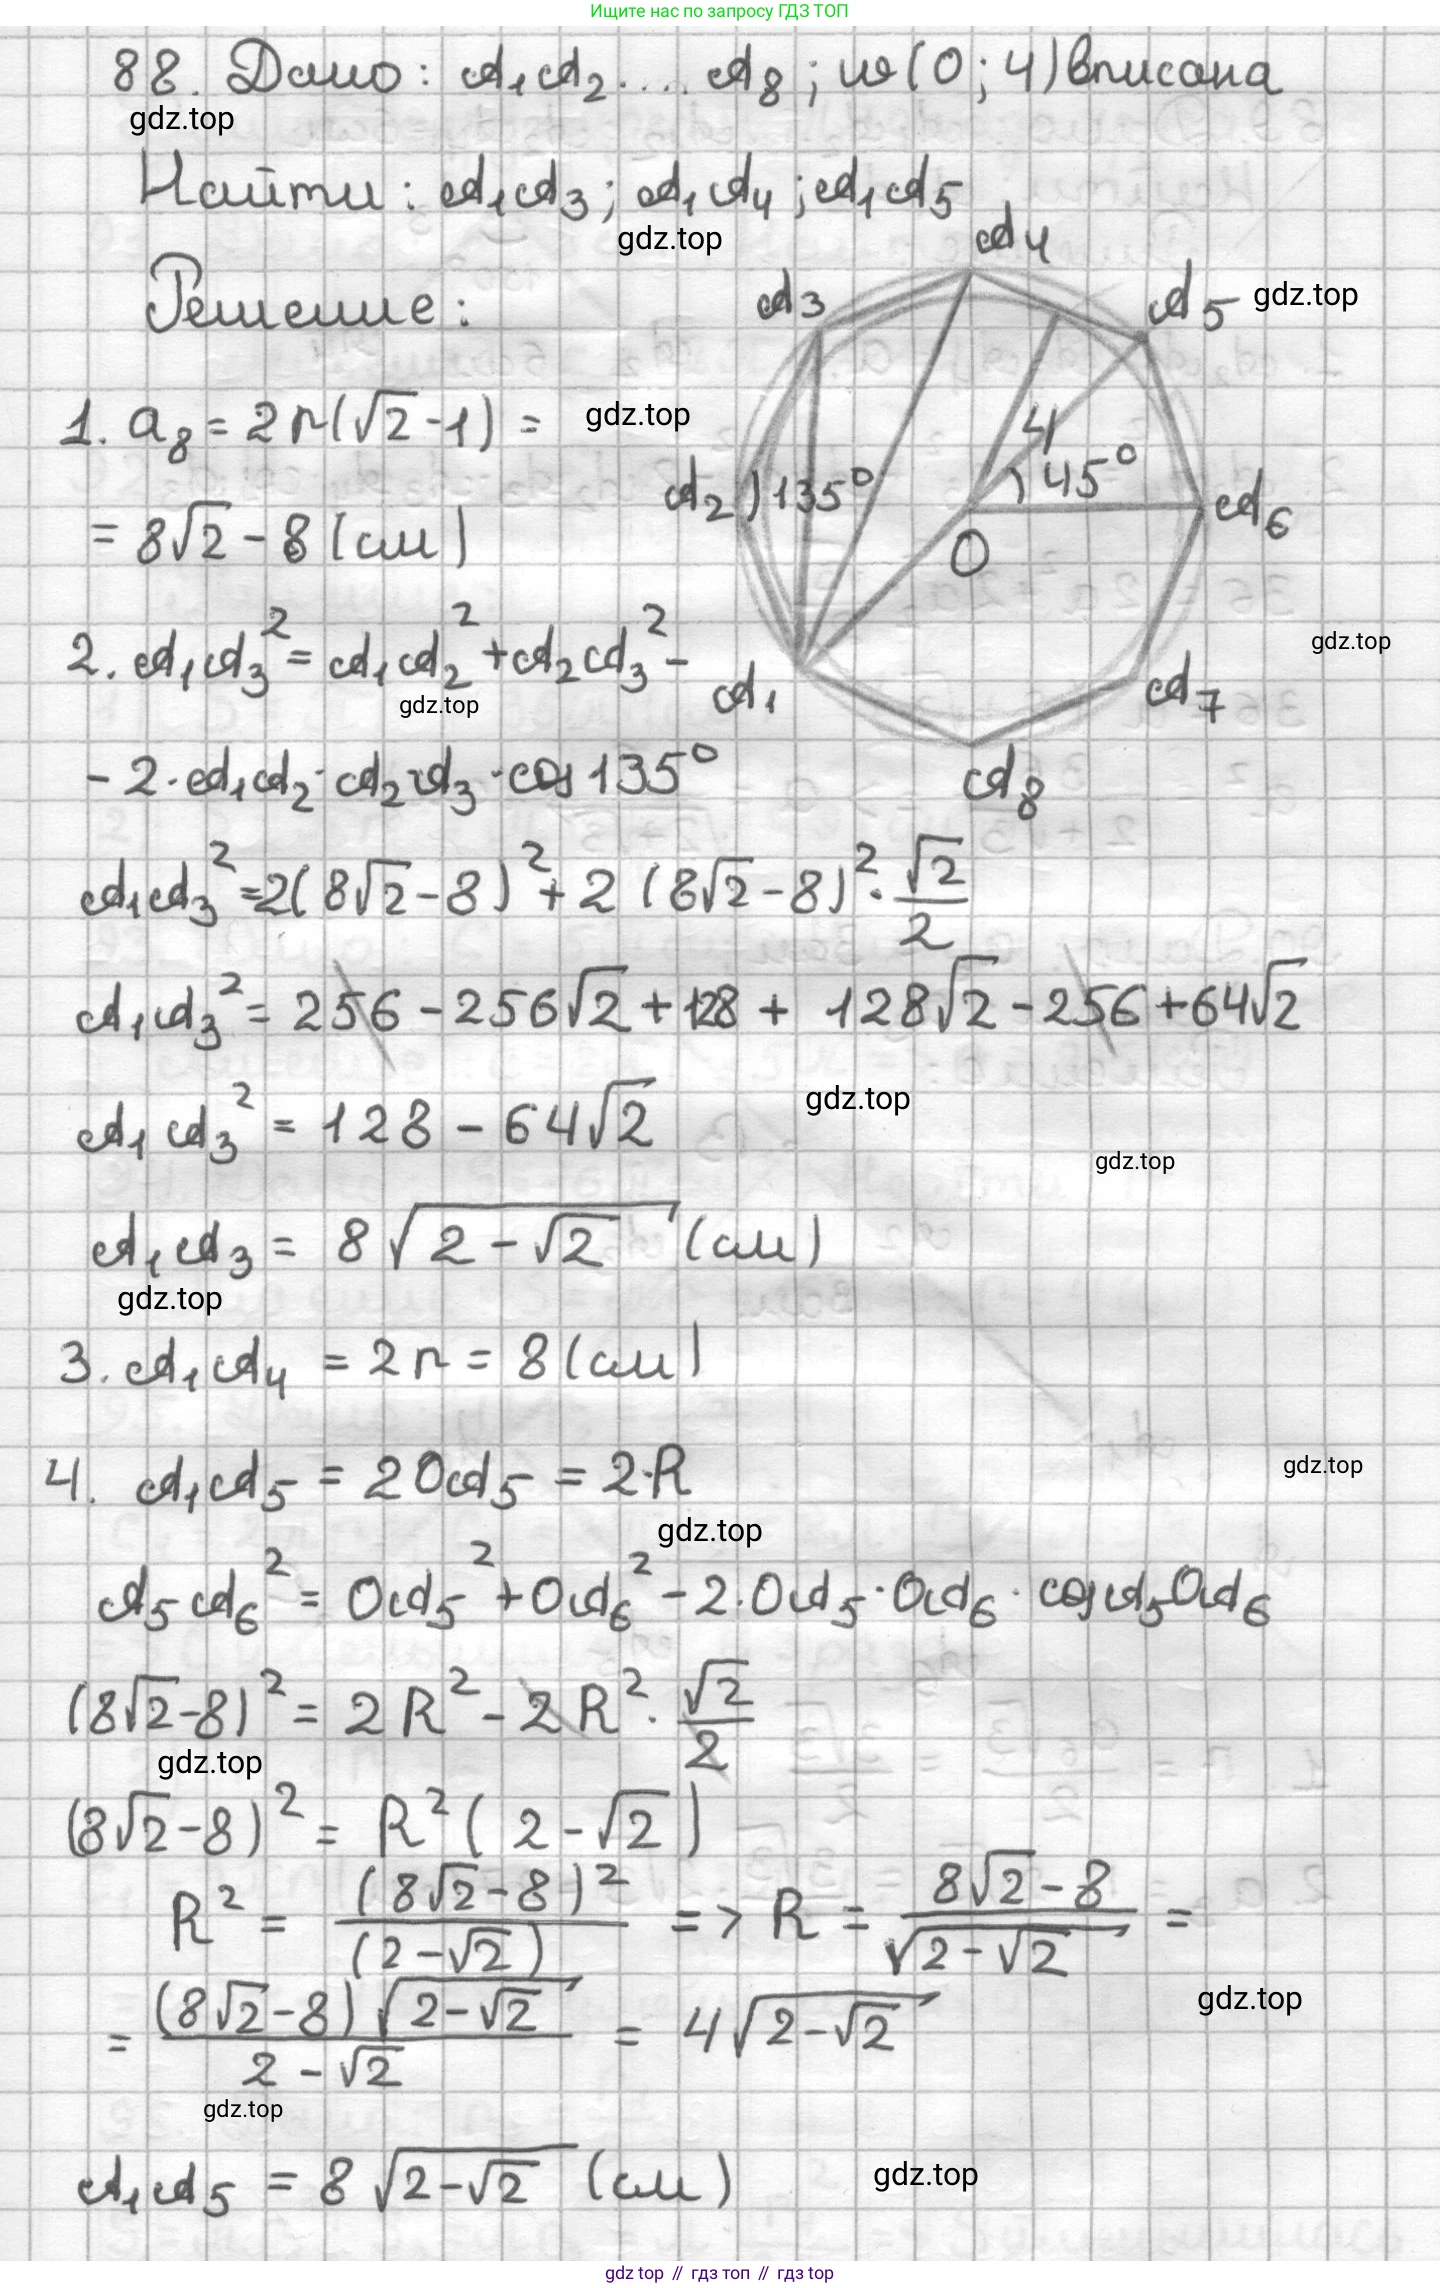 Ищите нас по запросу ГДЗ ТОП
88. Дано: A₁A₂....A₈; ω(O;4) вписана
gdz.top
Найти: A₁A₃; A₁A₄; A₁A₅
gdz.top
Решение:
A₄
A₃
A₅
gdz.top
1. a₈ = 2r(√2-1) =
gdz.top
4
45°
A₂
135°
A₆
O
= 8√2 - 8 (см)
2. A₁A₃² = A₁A₂² + A₂A₃² -
gdz.top
gdz.top
A₁
A₇
A₈
- 2·A₁A₂·A₂A₃·cos 135°
A₁A₃² = 2(8√2-8)² + 2(8√2-8)²·√2/2
A₁A₃² = 256 - 256√2 + 128 + 128√2 - 256 + 64√2
A₁A₃² = 128 - 64√2
gdz.top
gdz.top
A₁A₃ = 8√(2-√2) (см)
gdz.top
3. A₁A₄ = 2r = 8 (см)
4. A₁A₅ = 2OA₅ = 2·R
gdz.top
gdz.top
A₅A₆² = OA₅² + OA₆² - 2·OA₅·OA₆·cos A₅OA₆
(8√2-8)² = 2R² - 2R²·√2/2
gdz.top
(8√2-8)² = R²(2-√2)
R² = (8√2-8)²/(2-√2) => R = (8√2-8)/√(2-√2) =
gdz.top
= (8√2-8)√(2-√2)/(2-√2) = 4√(2-√2)
gdz.top
A₁A₅ = 8√(2-√2) (см)
gdz.top
gdz top // гдз топ // гдз top